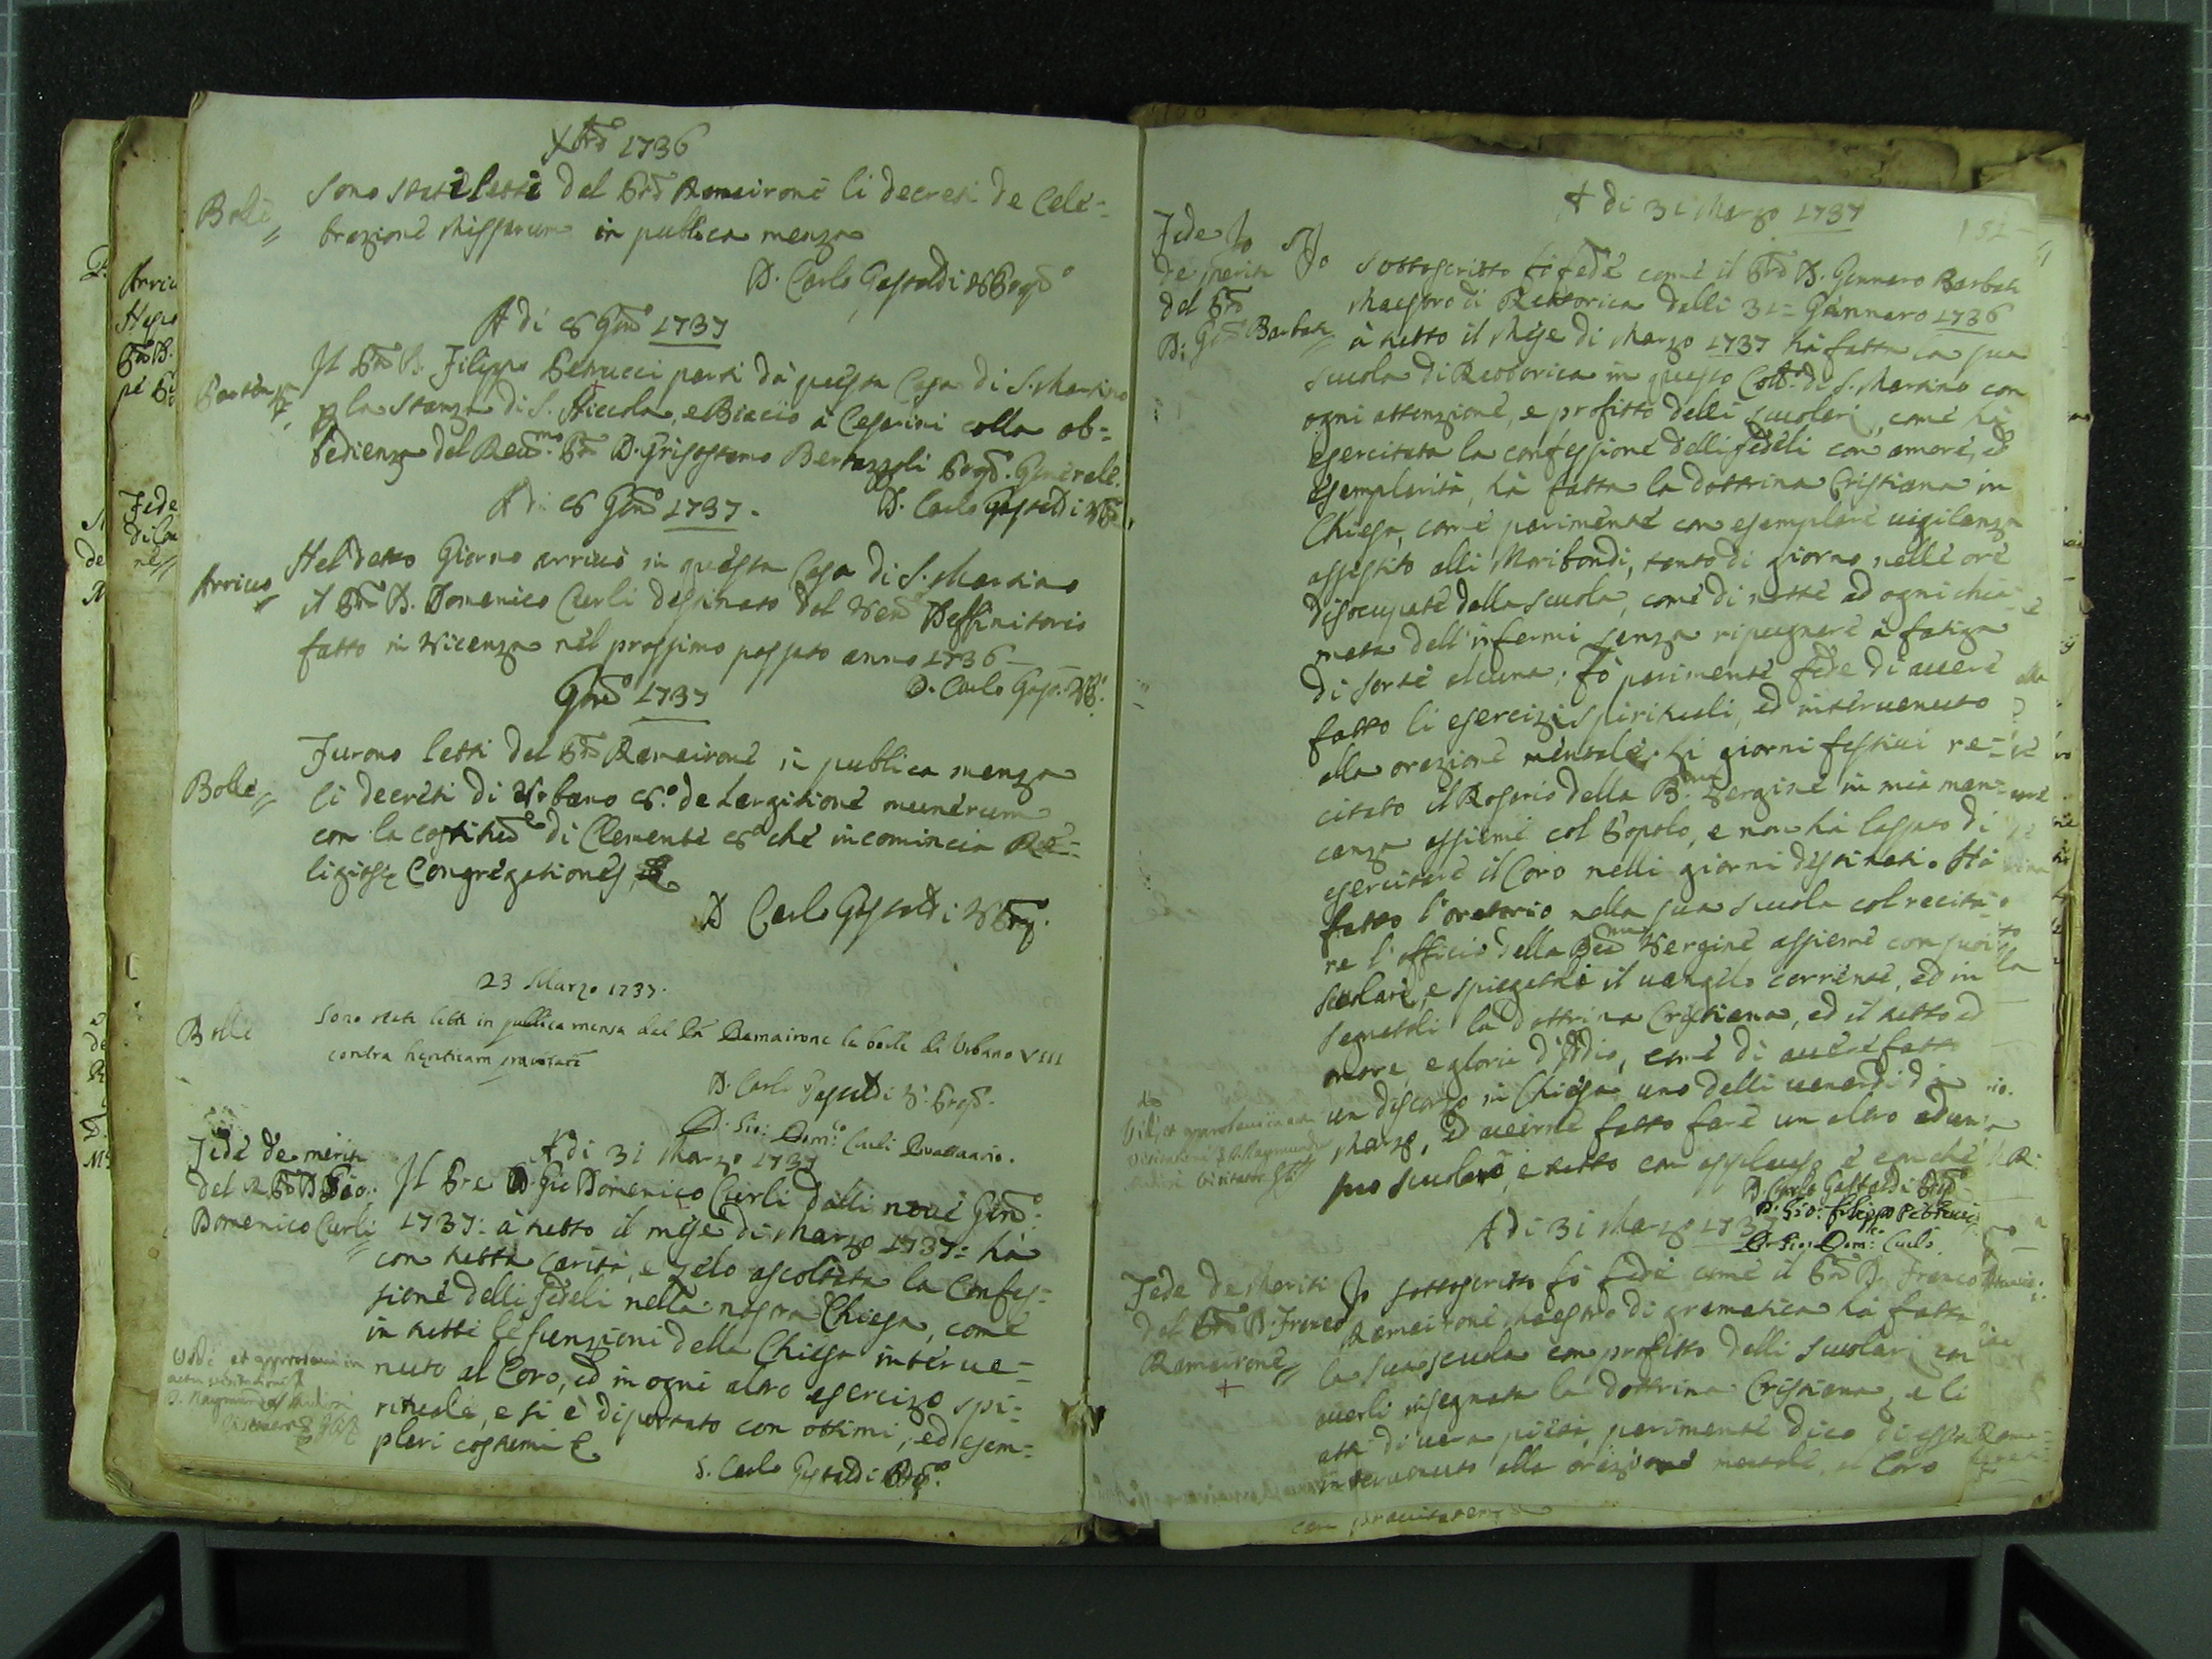 Xbre 1736
Bolle
Sono stati letti dal Pre Ramairone li decreti de Cele=
brazione Missarum in publica menza
D. Carlo Gastaldi VPrepto
A di 8 Gen° 1737
Partenza
Il Pre D. Filippo Petrucci partì da questa Casa di S. Martino
p la stanza di S. Niccola, e Biacio à Cesarini colla ob=
bedienza del Reu.mo Pre D. Grisostomo Bertazzoli Prep. Generale.
D. Carlo Gastaldi VP
A di 8 Gen° 1737.
Arriuo
Nel detto Giorno arriuò in questa Casa di S. Martino
il Pre D. Domenico Curli destinato dal Ven Deffinitorio
fatto in Vicenza nel prossimo passato anno 1736
D. Carlo Gas. VP.
Gen° 1737
Bolle
Furono letti dal Pre Ramairone in publica menza
li decreti di Vrbano 8.° de Largitione munerum
con la costitue di Clemente 8° che incomincia Re=
ligiosę Congregationes, &
D Carlo Gastaldi VPrep.
23 Marzo 1737.
Bolle
Sono state lette in publica mensa dal Pre Ramairone le bolle di Urbano VIII
contra hęreticam prauitatē
D. Carlo Gastaldi V. Prep.
D. Gio: Dom:co Curli Attuario.
A di 31 Marzo 1737
Fede de meriti
del R Pre D Gio:
Domenico Curli
Il Pre D Gio Domenico Curli dalli noue Gen°:
1737: à tutto il mese di Marzo 1737= hà
con tutta carità, e zelo ascoltata la Confes=
sione delli fedeli nella nostra Chiesa, come
in tutte le funzioni della Chiesa interue=
nuto al Coro, ed in ogni altro esercizo spi=
rituale, e si è diportato con ottimi, ed esem=
plari costumi &
Vidi et approbaui in
actu uisitationis
D. Raymundus
Visitator
D. Carlo Gastaldi Prep.to
A di 31 Marzo 1737
151
Fede
de meriti
del Pre
D: Gen° Barbati
Io sottoscritto fò fede come il Pre D. Gennaro Barbati
Maestro di Rettorica dalli 31= Gennaro 1736
à tutto il Mese di Marzo 1737 hà fatta la sua
scuola di Rettorica in questo Coll.° di S. Martino con
ogni attenzione, e profitto delli scuolari, come hà
esercitata la confessione delli fedeli con amore, ed
esemplarità, hà fatta la dottrina Cristiana in
Chiesa, come parimente con esemplare uigilanza
assistito alli Moribondi, tanto di giorno nelle ore
disocupate dalla scuola, come di notte ad ogni chia=
mata dell'infermi senza ripugnare à fatiga
di sorte alcuna; fò parimente fede di auere
fatto li esercizi spirituali, ed interuenuto
alla orazione mentale. Li giorni festiui re=
citato il Rosario della B. Vergine in mia man=
canza assieme col Popolo, e non hà lassato di
esercitare il Coro nelli giorni destinati. Hà
fatto l'oratorio nella sua scuola col recita=
re l'officio della Bea Vergine assieme con suoi
scolari, e spiegatoli il uangelo corrente, ed in
segnatoli la dottrina Cristiana, ed il tutto ad
onore, e gloria d'Iddio, come di auere fatto
un discorso in Chiesa uno delli uenerdi di
Marzo, ed auerne fatto fare un altro ad un
suo scuolare, e tutto con applauso
Vidi, et approbaui in actu
Visitationis D. Raymundus
Visitator
D Carlo Gastaldi Prep
D. Gio: Filippo Petrucci
D. Gio: Dom:co Curli
A di 31 Marzo 1737
Fede de Meriti
del Pre D. Franco
Ramairone
Io sottoscritto fò fede come il Pre D. Franco
Ramairone Maestro di gramatica hà fatta
la sua scuola con profitto delli scuolari con
auerli insegnata la dottrina Cristiana, e li
atti di uera pietà, parimente dico di essere
interuenuto alla orazione mentale, al Coro